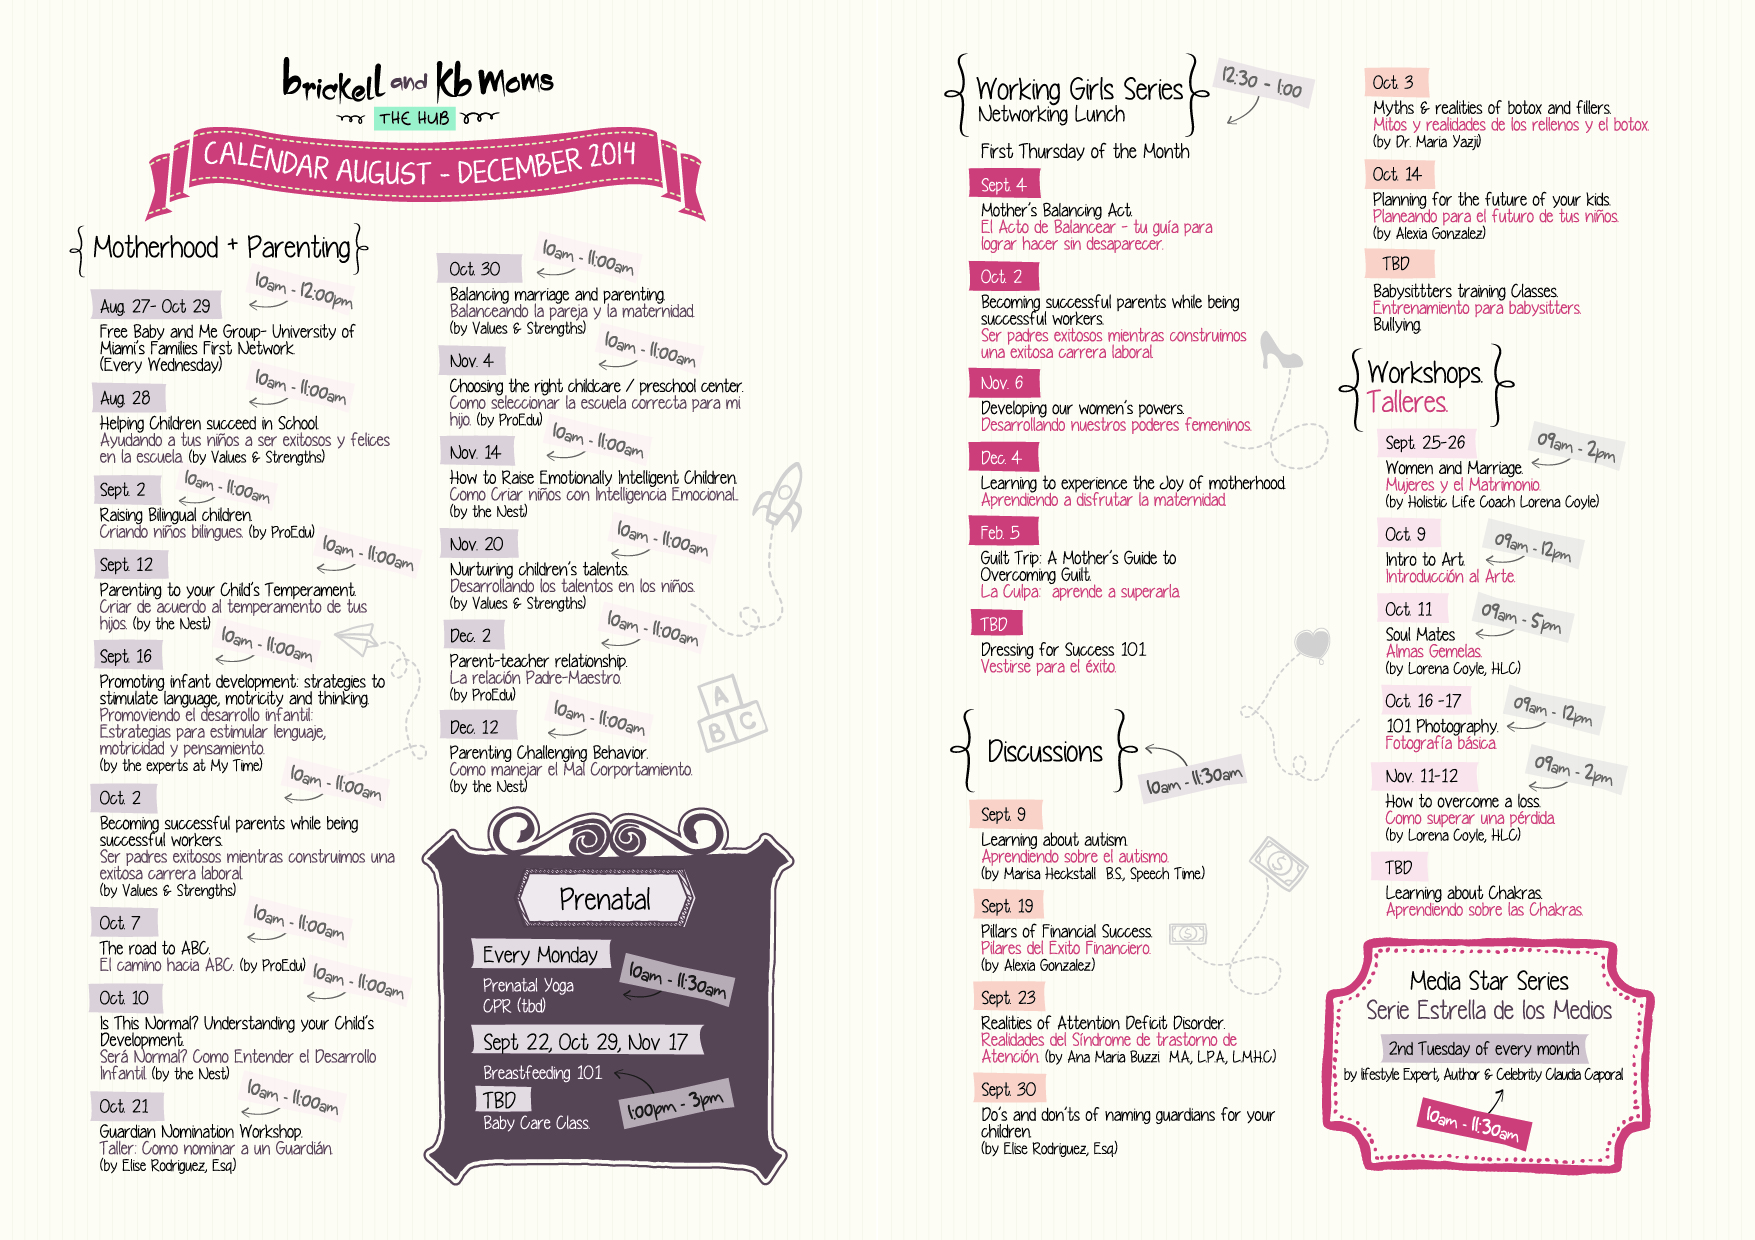 brickell and kb Moms
THE HUB
CALENDAR AUGUST - DECEMBER 2014
Motherhood + Parenting
10am - 12:00pm
Aug. 27- Oct 29
Free Baby and Me Group- University of
Miami's Families First Network.
(Every Wednesday)
10am - 11:00am
Aug. 28
Helping Children succeed in School.
Ayudando a tus niños a ser exitosos y felices
en la escuela. (by Values & Strengths)
10am - 11:00am
Sept. 2
Raising Bilingual children.
Criando niños bilingues. (by ProEdu)
10am - 11:00am
Sept. 12
Parenting to your Child's Temperament.
Criar de acuerdo al temperamento de tus
hijos. (by the Nest)
10am - 11:00am
Sept. 16
Promoting infant development: strategies to
stimulate language, motricity and thinking.
Promoviendo el desarrollo infantil:
Estrategias para estimular lenguaje,
motricidad y pensamiento.
(by the experts at My Time)
10am - 11:00am
Oct. 2
Becoming successful parents while being
successful workers.
Ser padres exitosos mientras construimos una
exitosa carrera laboral.
(by Values & Strengths)
10am - 11:00am
Oct. 7
The road to ABC.
El camino hacia ABC. (by ProEdu)
10am - 11:00am
Oct. 10
Is This Normal? Understanding your Child's
Development.
Será Normal? Como Entender el Desarrollo
Infantil. (by the Nest)
10am - 11:00am
Oct. 21
Guardian Nomination Workshop.
Taller: Como nominar a un Guardián.
(by Elise Rodriguez, Esq.)
10am - 11:00am
Oct. 30
Balancing marriage and parenting.
Balanceando la pareja y la maternidad.
(by Values & Strengths)
10am - 11:00am
Nov. 4
Choosing the right childcare / preschool center.
Como seleccionar la escuela correcta para mi
hijo. (by ProEdu)
10am - 11:00am
Nov. 14
How to Raise Emotionally Intelligent Children.
Como Criar niños con Intelligencia Emocional..
(by the Nest)
10am - 11:00am
Nov. 20
Nurturing children's talents.
Desarrollando los talentos en los niños.
(by Values & Strengths)
10am - 11:00am
Dec. 2
Parent-teacher relationship.
La relación Padre-Maestro.
(by ProEdu)
10am - 11:00am
Dec. 12
Parenting Challenging Behavior.
Como manejar el Mal Corportamiento.
(by the Nest)
A
B C
Prenatal
Every Monday
Prenatal Yoga
CPR (tbd)
10am - 11:30am
Sept 22, Oct 29, Nov 17
Breastfeeding 101
1:00pm - 3pm
TBD
Baby Care Class.
Working Girls Series
Networking Lunch
12:30 - 1:00
First Thursday of the Month
Sept. 4
Mother's Balancing Act.
El Acto de Balancear - tu guía para
lograr hacer sin desaparecer.
Oct. 2
Becoming successful parents while being
successful workers.
Ser padres exitosos mientras construimos
una exitosa carrera laboral.
Nov. 6
Developing our women's powers.
Desarrollando nuestros poderes femeninos.
Dec. 4
Learning to experience the Joy of motherhood.
Aprendiendo a disfrutar la maternidad.
Feb. 5
Guilt Trip: A Mother's Guide to
Overcoming Guilt.
La Culpa: aprende a superarla.
TBD
Dressing for Success 101.
Vestirse para el éxito.
Discussions
10am - 11:30am
Sept. 9
Learning about autism.
Aprendiendo sobre el autismo.
(by Marisa Heckstall B.S, Speech Time)
Sept. 19
Pillars of Financial Success.
Pilares del Exito Financiero.
(by Alexia Gonzalez)
Sept. 23
Realities of Attention Deficit Disorder.
Realidades del Síndrome de trastorno de
Atención. (by Ana Maria Buzzi MA, L.P.A, L.M.H.C)
Sept. 30
Do's and don'ts of naming guardians for your
children.
(by Elise Rodriguez, Esq.)
Oct. 3
Myths & realities of botox and fillers.
Mitos y realidades de los rellenos y el botox.
(by Dr. Maria Yazji)
Oct. 14
Planning for the future of your kids.
Planeando para el futuro de tus niños.
(by Alexia Gonzalez)
TBD
Babysittters training Classes.
Entrenamiento para babysitters.
Bullying.
Workshops.
Talleres.
Sept. 25-26
09am - 2pm
Women and Marriage.
Mujeres y el Matrimonio.
(by Holistic Life Coach Lorena Coyle)
Oct. 9
09am - 12pm
Intro to Art.
Introducción al Arte.
Oct. 11
09am - 5pm
Soul Mates
Almas Gemelas.
(by Lorena Coyle, HLC)
Oct. 16 -17
09am - 12pm
101 Photography.
Fotografía básica.
Nov. 11-12
09am - 2pm
How to overcome a loss.
Como superar una pérdida.
(by Lorena Coyle, HLC)
TBD
Learning about Chakras.
Aprendiendo sobre las Chakras.
Media Star Series
Serie Estrella de los Medios
2nd Tuesday of every month
by lifestyle Expert, Author & Celebrity Claudia Caporal
10am - 11:30am